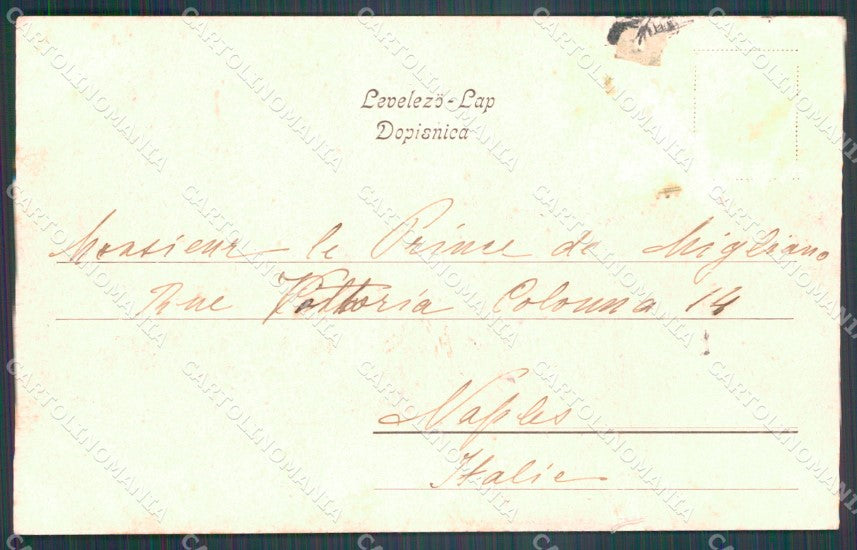 Levelező-Lap
Dopisnica
Monsieur le Prince de Migliano
Rue Vittoria Colonna 14
Naples
Italie
CARTOLINOMANIA